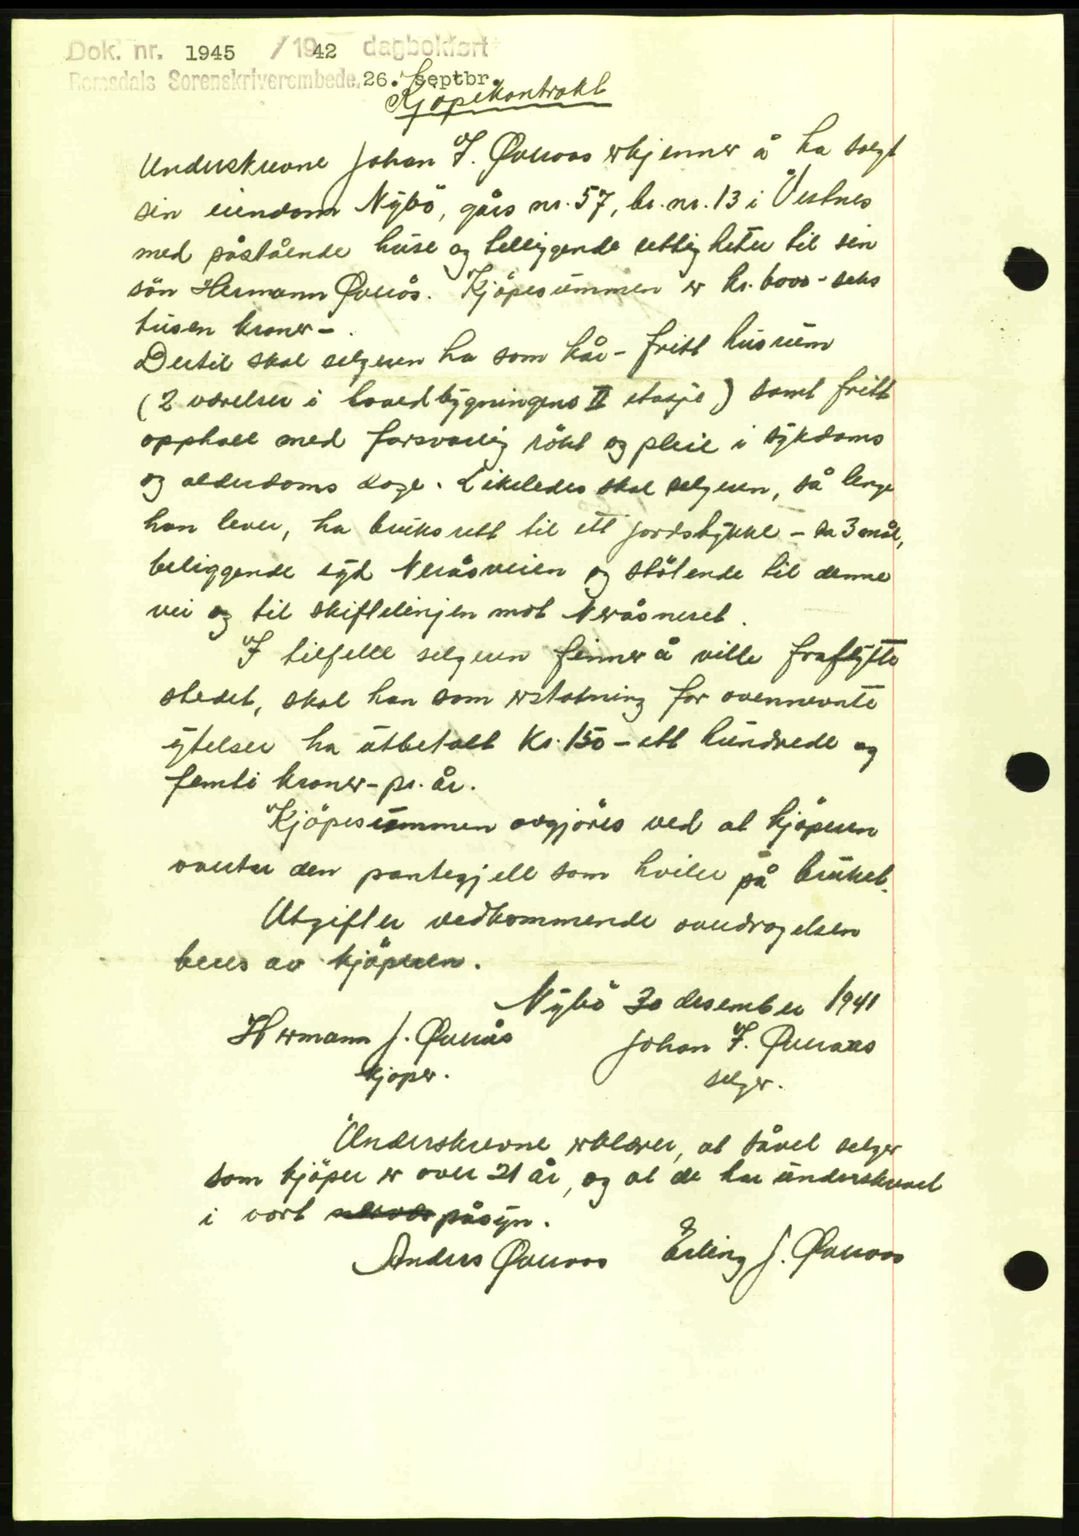 Dok. nr. 1945 / 1942 dagbokført
Romsdals Sorenskriverembede. 26. septbr.
Kjøpekontrakt
Underskrevne Johan J. Øveraas erkjenner å ha solgt
sin eiendom Nybö, gårs nr. 57, br. nr. 13 i Vestnes
med påstående huse og tilliggende rettigheter til sin
sön Hermann Øverås. Kjöpesummen er kr. 6000 - seks
tusen kroner -.
Dertil skal selgeren ha som kår - fritt husrum
(2 værelser i hovedbygningens II etasje) samt fritt
opphold med forsvarlig røkt og pleie i sykdoms
og alderdoms dage. Likeledes skal selgeren, så lenge
han lever, ha bruksrett til ett jordstykke - ca 3 mål,
beliggende syd Neråsveien og stötende til denne
vei og til skiftelinjen mot Neråsneset.
I tilfelle selgeren finner å ville fraflytte
stedet, skal han som erstatning for ovennevnte
ytelser ha utbetalt Kr. 150 - ett hundrede og
femti kroner - pr. år.
Kjöpesummen avgjöres ved at kjöperen
overtar den pantegjeld som hviler på bruket.
Utgifter vedkommende overdragelsen
beres av kjöperen.
Nybö 30 desember 1941
Hermann J. Øverås Johan J. Øveraas
kjöper. selger.
Underskrevne erklærer, at såvel selger
som kjöper er over 21 år, og at de har underskrevet
i vort påsyn.
Anders Øveraas Erling J. Øveraas